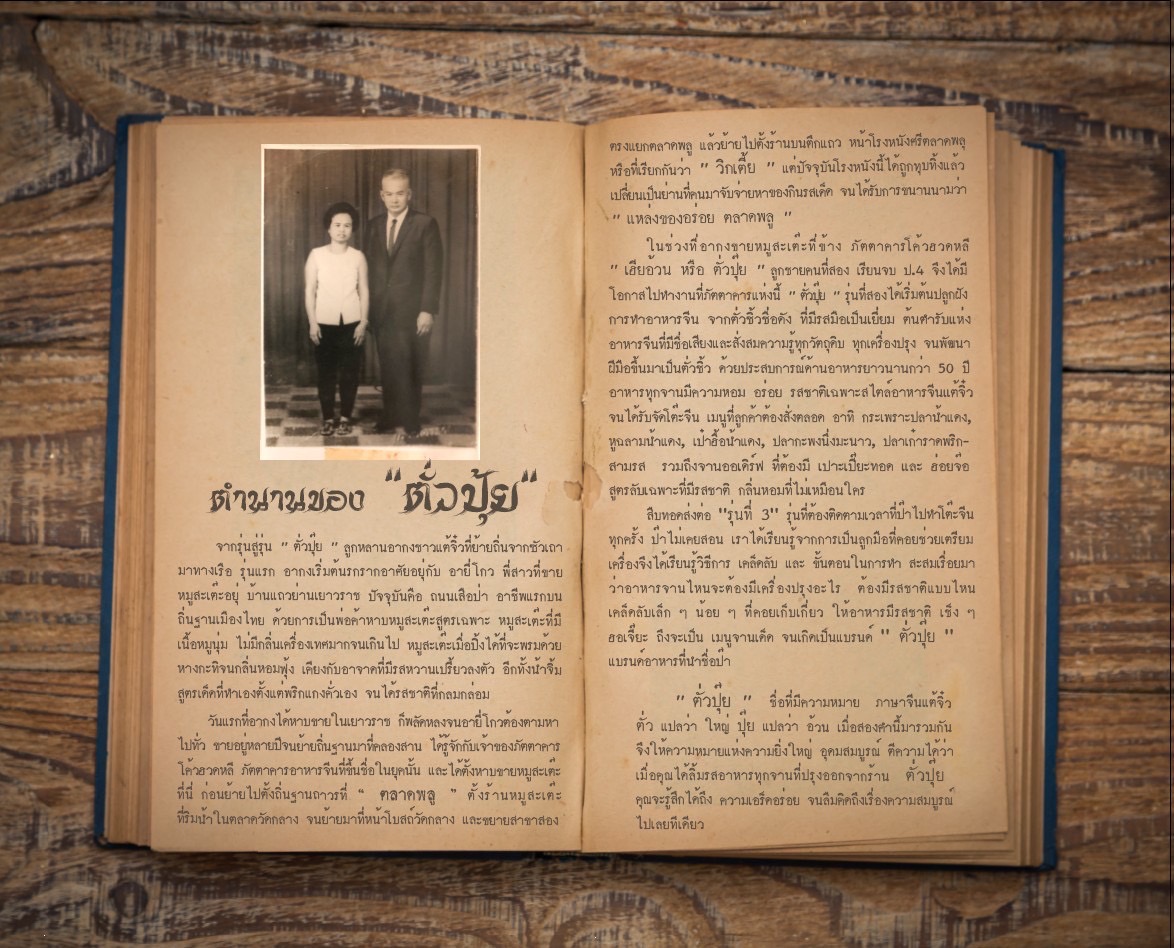 ตำนานของ "ตั่วปุ้ย"
จากรุ่นสู่รุ่น " ตั่วปุ๊ย " ลูกหลานอากงชาวแต้จิ๋วที่ย้ายถิ่นจากซัวเถา
มาทางเรือ รุ่นแรก อากงเริ่มต้นรกรากอาศัยอยู่กับ อายี่โกว พี่สาวที่ขาย
หมูสะเต๊ะอยู่ บ้านแถวย่านเยาวราช ปัจจุบันคือ ถนนเสือป่า อาชีพแรกบน
ถิ่นฐานเมืองไทย ด้วยการเป็นพ่อค้าหาบหมูสะเต๊ะสูตรเฉพาะ หมูสะเต๊ะที่มี
เนื้อหมูนุ่ม ไม่มีกลิ่นเครื่องเทศมากจนเกินไป หมูสะเต๊ะเมื่อปิ้งได้ที่จะพรมด้วย
หางกะทิจนกลิ่นหอมฟุ้ง เคียงกับอาจาดที่มีรสหวานเปรี้ยวลงตัว อีกทั้งน้ำจิ้ม
สูตรเด็ดที่ทำเองตั้งแต่พริกแกงคั่วเอง จนได้รสชาติที่กลมกล่อม
วันแรกที่อากงได้หาบขายในเยาวราช ก็พลัดหลงจนอายี่โกวต้องตามหา
ไปทั่ว ขายอยู่หลายปีจนย้ายถิ่นฐานมาที่คลองสาน ได้รู้จักกับเจ้าของภัตตาคาร
โค้วฮวดหลี ภัตตาคารอาหารจีนที่ขึ้นชื่อในยุคนั้น และได้ตั้งหาบขายหมูสะเต๊ะ
ที่นี่ ก่อนย้ายไปตั้งถิ่นฐานถาวรที่ " ตลาดพลู " ตั้งร้านหมูสะเต๊ะ
ที่ริมน้ำในตลาดวัดกลาง จนย้ายมาที่หน้าโบสถ์วัดกลาง และขยายสาขาสอง
ตรงแยกตลาดพลู แล้วย้ายไปตั้งร้านบนตึกแถว หน้าโรงหนังศรีตลาดพลู
หรือที่เรียกกันว่า " วิกเตี้ย " แต่ปัจจุบันโรงหนังนี้ได้ถูกทุบทิ้งแล้ว
เปลี่ยนเป็นย่านที่คนมาจับจ่ายหาของกินรสเด็ด จนได้รับการขนานนามว่า
" แหล่งของอร่อย ตลาดพลู "
ในช่วงที่อากงขายหมูสะเต๊ะที่ข้าง ภัตตาคารโค้วฮวดหลี
" เฮียอ้วน หรือ ตั่วปุ๊ย " ลูกชายคนที่สอง เรียนจบ ป.4 จึงได้มี
โอกาสไปทำงานที่ภัตตาคารแห่งนี้ " ตั่วปุ๊ย " รุ่นที่สองได้เริ่มต้นปลูกฝัง
การทำอาหารจีน จากตั่วชิ้วชื่อดัง ที่มีรสมือเป็นเยี่ยม ต้นตำรับแห่ง
อาหารจีนที่มีชื่อเสียงและสั่งสมความรู้ทุกวัตถุดิบ ทุกเครื่องปรุง จนพัฒนา
ฝีมือขึ้นมาเป็นตั่วชิ้ว ด้วยประสบการณ์ด้านอาหารยาวนานกว่า 50 ปี
อาหารทุกจานมีความหอม อร่อย รสชาติเฉพาะสไตล์อาหารจีนแต้จิ๋ว
จนได้รับจัดโต๊ะจีน เมนูที่ลูกค้าต้องสั่งตลอด อาทิ กระเพาะปลาน้ำแดง,
หูฉลามน้ำแดง, เป๋าฮื้อน้ำแดง, ปลากะพงนึ่งมะนาว, ปลาเก๋าราดพริก-
สามรส รวมถึงจานออเดิร์ฟ ที่ต้องมี เปาะเปี๊ยะทอด และ ฮ่อยจ๊อ
สูตรลับเฉพาะที่มีรสชาติ กลิ่นหอมที่ไม่เหมือนใคร
สืบทอดส่งต่อ "รุ่นที่ 3" รุ่นที่ต้องติดตามเวลาที่ป๊าไปทำโต๊ะจีน
ทุกครั้ง ป๊าไม่เคยสอน เราได้เรียนรู้จากการเป็นลูกมือที่คอยช่วยเตรียม
เครื่องจึงได้เรียนรู้วิธีการ เคล็ดลับ และ ขั้นตอนในการทำ สะสมเรื่อยมา
ว่าอาหารจานไหนจะต้องมีเครื่องปรุงอะไร ต้องมีรสชาติแบบไหน
เคล็ดลับเล็ก ๆ น้อย ๆ ที่คอยเก็บเกี่ยว ให้อาหารมีรสชาติ เช็ง ๆ
ฮอเจี๊ยะ ถึงจะเป็น เมนูจานเด็ด จนเกิดเป็นแบรนด์ " ตั่วปุ๊ย "
แบรนด์อาหารที่นำชื่อป๊า
" ตั่วปุ๊ย " ชื่อที่มีความหมาย ภาษาจีนแต้จิ๋ว
ตั่ว แปลว่า ใหญ่ ปุ๊ย แปลว่า อ้วน เมื่อสองคำนี้มารวมกัน
จึงให้ความหมายแห่งความยิ่งใหญ่ อุดมสมบูรณ์ ตีความได้ว่า
เมื่อคุณได้ลิ้มรสอาหารทุกจานที่ปรุงออกจากร้าน ตั่วปุ๊ย
คุณจะรู้สึกได้ถึง ความเอร็ดอร่อย จนลืมคิดถึงเรื่องความสมบูรณ์
ไปเลยทีเดียว